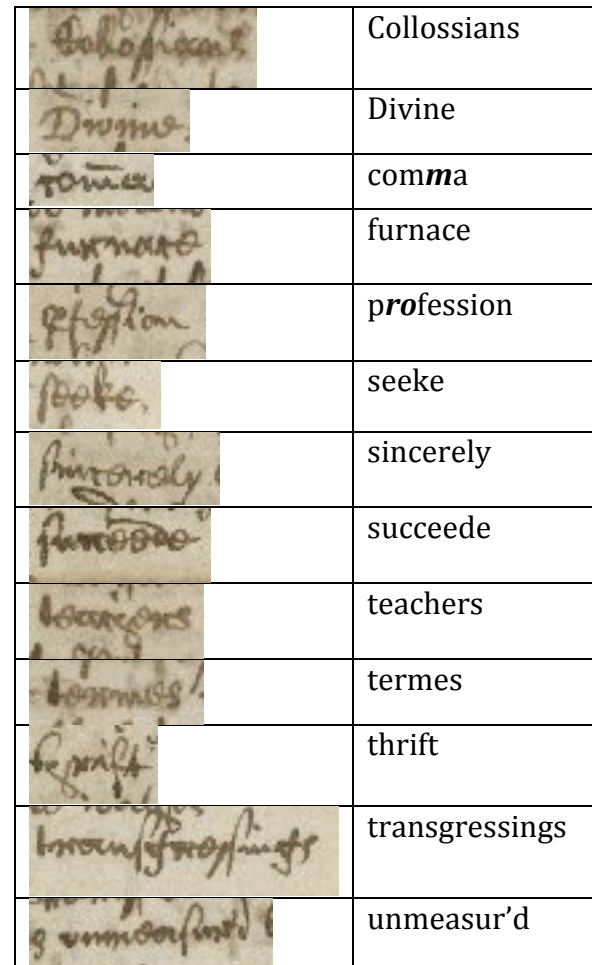 Collossians Collossians
Divine. Divine
com̄a comma
furnace furnace
ꝓfession profession
seeke, seeke
sincerely sincerely
succeede succeede
teachers teachers
termes termes
thrift thrift
transgressings transgressings
unmeasur'd unmeasur’d